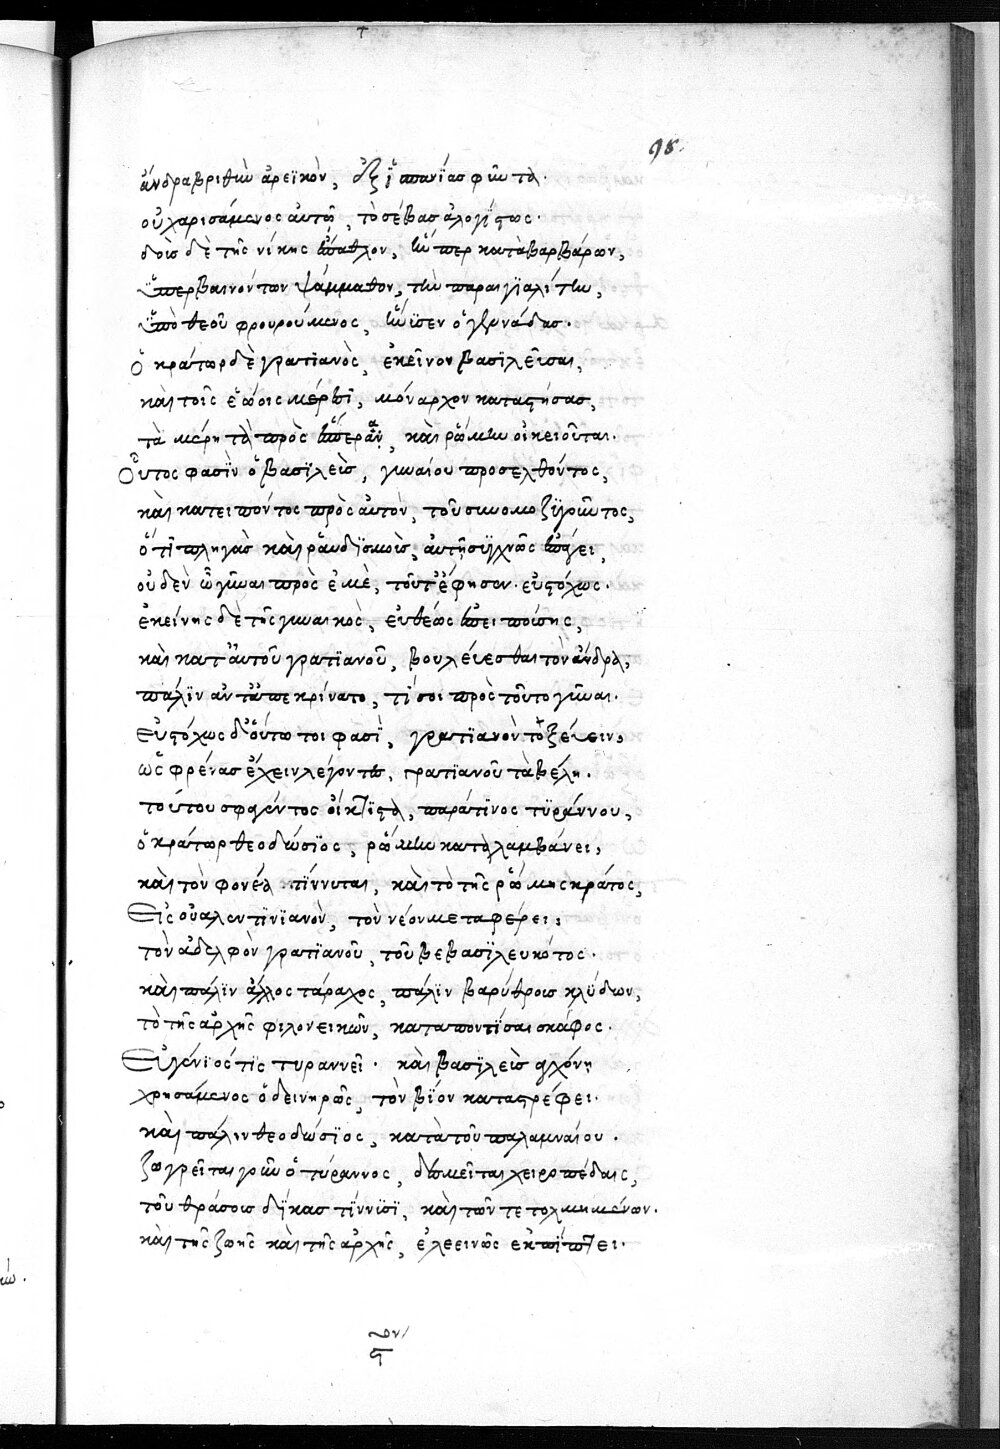 98.
ἄνδρα βριθὺν ἀρεϊκὸν, ἐξ ἱσπανίας φῦντα.
οὐ χαρισάμενος αὐτῶ, τὸ σέβας ἀλογίστως.
δοὺς δὲ τῆς νίκης ἔπαθλον, ἥνπερ κατὰ βαρβάρων,
ὑπερβαινόντων ψάμμαθον, τὴν παραιγϊαλίτην,
ὑπὸ θεοῦ φρουρούμενος, ἤνϋσεν ὁ γεννάδας.
Ὁ κράτωρ δὲ γρατϊανὸς, ἐκεῖνον βασϊλεῦσαι,
καὶ τοῖς ἑώοις μέρεσϊ, μόναρχον καταστήσας,
τὰ μέρη τὰ πρὸς ἑσπέραν, καὶ ῥώμην οἰκειοῦται.
Οὗτος φασὶν ὁ βασϊλεὺς, γυναίου προσελθόντος,
καὶ κατειπόντος πρὸς αὐτὸν, τοῦ συνομοζϋγοῦντος,
ὅτϊ πληγὰς καὶ ῥαυδϊσμοὺς, αὐτῆ συχνῶς ἐπάγει,
οὐδὲν ὦ γῦναι πρὸς ἐμὲ, τοῦτ' ἔφησεν εὐστόχως.
ἐκείνης δὲ τῆς γυναικὸς, εὐθέως ἐπειπούσης,
καὶ κατ' αὐτοῦ γρατϊανοῦ, βουλεύεσθαι τὸν ἄνδρα,
πάλϊν ἀνταπεκρίνατο, τί σοι πρὸς τοῦτο γῦναι.
Εὐστόχως δ' οὕτω τοι φασὶ, γρατϊανὸν τοξεύειν,
ὡς φρένας ἔχειν λέγοντας, γρατϊανοῦ τὰ βέλη.
τούτου σφαγέντος οἴκτϊστα, παρά τϊνος τϋράννου,
ὁ κράτωρ θεοδώσϊος, ῥώμην καταλαμβάνει,
καὶ τὸν φονέα τίννυται, καὶ τὸ τῆς ῥώμης κράτος,
Εἰς οὐαλεντϊνϊανὸν, τὸν νέον μεταφέρει,
τὸν ἀδελφὸν γρατϊανοῦ, τοῦ βεβασϊλευκότος.
καὶ πάλϊν ἄλλος τάραχος, πάλϊν βαρύθρους κλύδων,
τὸ τῆς ἀρχῆς φιλονεικῶν, καταποντϊσαι σκάφος.
Εὐγένϊός τϊς τυραννεῖ. καὶ βασϊλεὺς ἀγχόνη
χρησάμενος ὁ δεινηρῶς, τὸν βίον καταστρέφει.
καὶ πάλιν θεοδώσϊος, κατὰ τοῦ παλαμναίου.
ζωγρεῖται γοῦν ὁ τύραννος, δεσμεῖται χειροπέδαις,
τοῦ θράσους δίκας τίννϋσϊ, καὶ τῶν τετολμημένων.
καὶ τῆς ζωῆς καὶ τῆς ἀρχῆς, ἐλεεινῶς ἐκπίπτει.